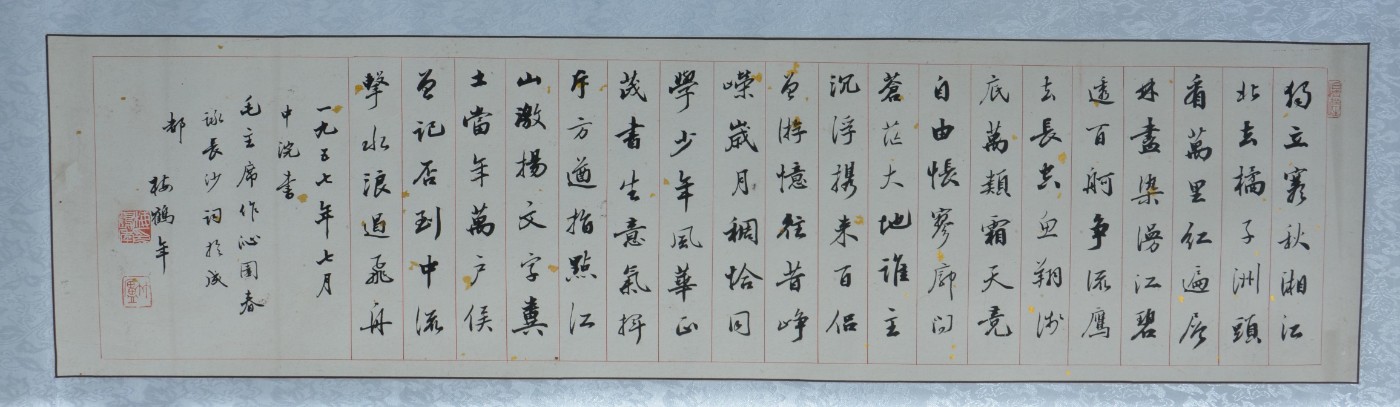 獨立寒秋湘江
北去橘子洲頭
看萬里紅遍层
林盡染漫江碧
透百舸争流鷹
击長空魚翔浅
底萬類霜天竞
自由悵寥廓问
蒼茫大地誰主
沉浮携来百侣
曾游憶往昔峥
嶸歲月稠恰同
學少年風華正
茂書生意氣揮
斥方遒指點江
山激揚文字糞
土當年萬户侯
曾記否到中流
擊水浪遏飛舟
一九五七年七月
中浣書
毛主席作沁園春
詠長沙词於成
都
梅鶴年